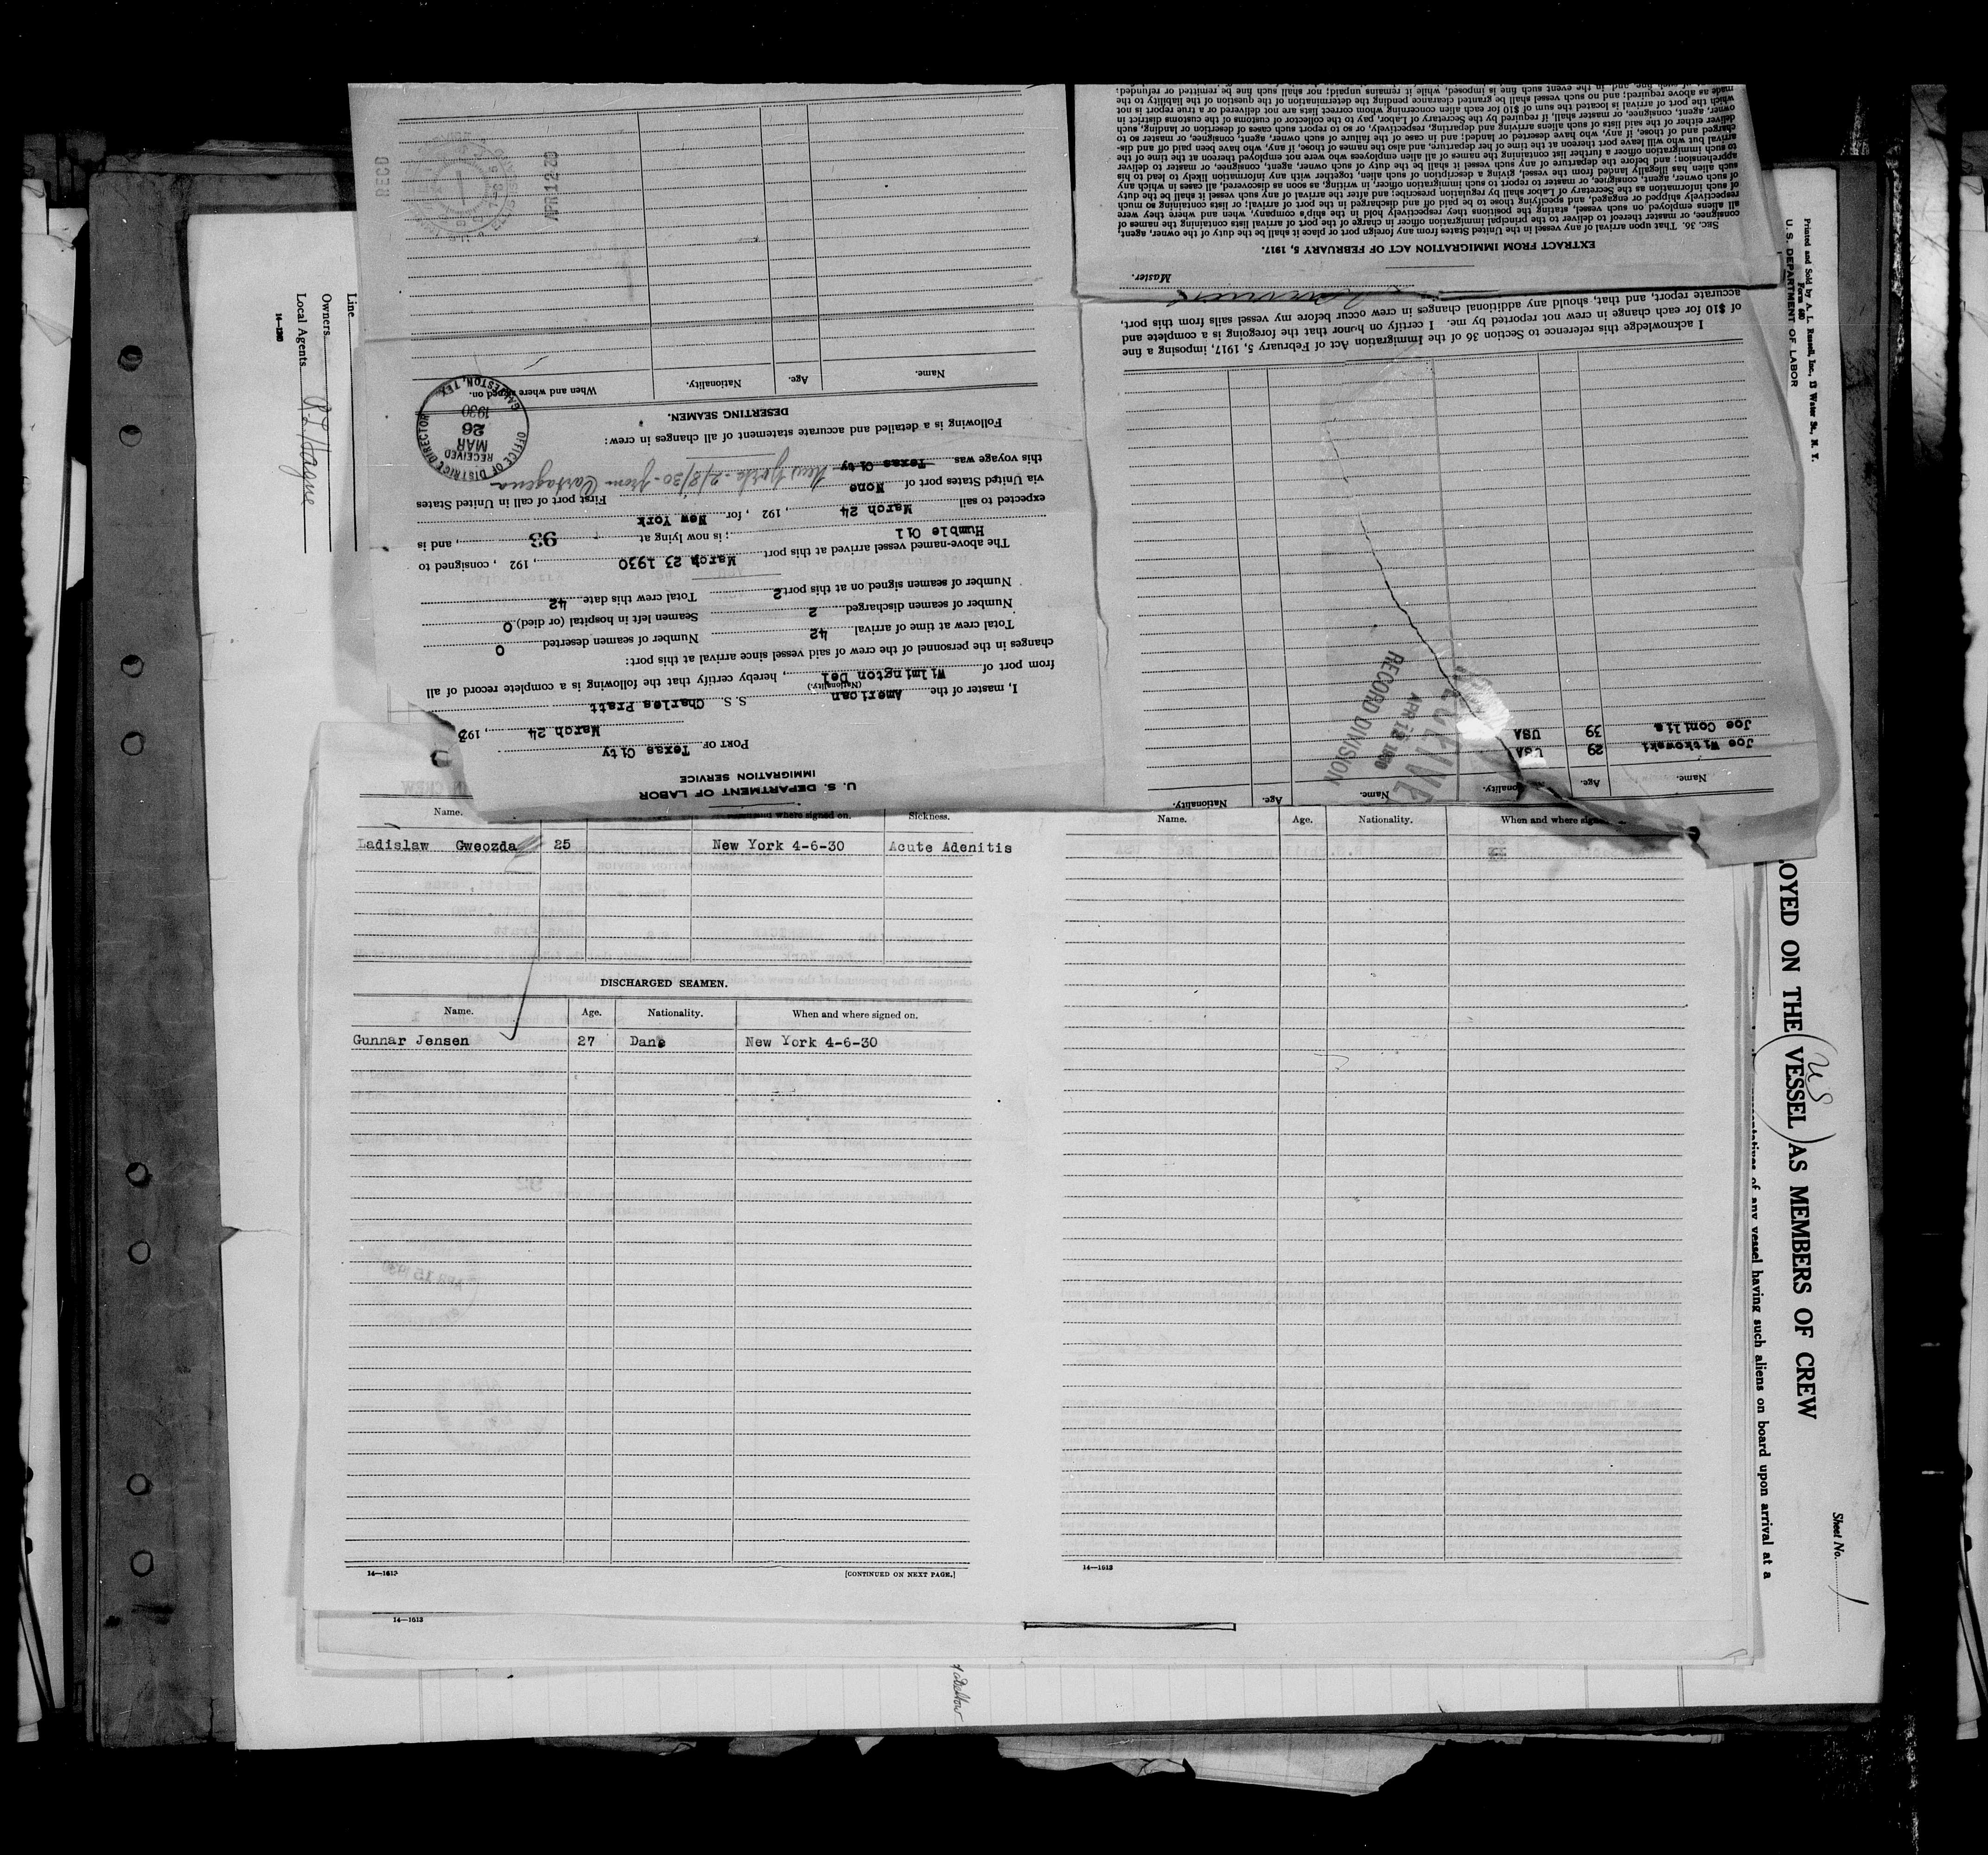 U. S. DEPARTMENT OF LABOR
IMMIGRATION SERVICE
PORT OF Texas City
March 24, 193
I, master of the American S. S. Charles Pratt
(Nationality.)
from port of Wilmington Del, hereby certify that the following is a complete record of all
changes in the personnel of the crew of said vessel since arrival at this port:
Total crew at time of arrival 42 Number of seamen deserted 0
Number of seamen discharged 2 Seamen left in hospital (or died) 0
Number of seamen signed on at this port 2 Total crew this date 42
The above-named vessel arrived at this port March 23 1930, 192 , consigned to
Humble Oil ; is now lying at 93, and is
expected to sail March 24, 192 , for New York
via United States port of None First port of call in United States
this voyage was Texas City New York 2/8/30 - from Cartagena
Following is a detailed and accurate statement of all changes in crew:
DESERTING SEAMEN.
Name. Age. Nationality. When and where signed on.
OFFICE OF DISTRICT DIRECTOR
RECEIVED
MAR
26
1930
GALVESTON, TEX.
APR 12 30
RECD
Name. Age. Nationality. Name. Age. Nationality.
Joe Witkowski 29 USA
Joe Conilla 39 USA
RECORD DIVISION
I acknowledge this reference to Section 36 of the Immigration Act of February 5, 1917, imposing a fine
of $10 for each change in crew not reported by me. I certify on honor that the foregoing is a complete and
accurate report, and that, should any additional changes in crew occur before my vessel sails from this port,
Master.
EXTRACT FROM IMMIGRATION ACT OF FEBRUARY 5, 1917.
SEC. 36. That upon arrival of any vessel in the United States from any foreign port or place it shall be the duty of the owner, agent,
consignee, or master thereof to deliver to the principal immigration officer in charge of the port of arrival lists containing the names of
all aliens employed on such vessel, stating the positions they respectively hold in the ship's company, when and where they were
respectively shipped or engaged, and specifying those to be paid off and discharged in the port of arrival; or lists containing so much
of such information as the Secretary of Labor shall by regulation prescribe; and after the arrival of any such vessel it shall be the duty
of such owner, agent, consignee, or master to report to such immigration officer, in writing, as soon as discovered, all cases in which any
such alien has illegally landed from the vessel, giving a description of such alien, together with any information likely to lead to his
apprehension; and before the departure of any such vessel it shall be the duty of such owner, agent, consignee, or master to deliver
to such immigration officer a further list containing the names of all alien employees who were not employed thereon at the time of the
arrival but who will leave port thereon at the time of her departure, and also the names of those, if any, who have been paid off and dis-
charged and of those, if any, who have deserted or landed; and in case of the failure of such owner, agent, consignee, or master so to
deliver either of the said lists of such aliens arriving and departing, respectively, or so to report such cases of desertion or landing, such
owner, agent, consignee, or master shall, if required by the Secretary of Labor, pay to the collector of customs of the customs district in
which the port of arrival is located the sum of $10 for each alien concerning whom correct lists are not delivered or a true report is not
made as above required; and no such vessel shall be granted clearance pending the determination of the question of the liability to the
such fine, and in the event such fine is imposed, while it remains unpaid; nor shall such fine be remitted or refunded.
Name. where signed on. Sickness.
Ladislaw Gweozda 25 New York 4-6-30 Acute Adenitis
DISCHARGED SEAMEN.
Name. Age. Nationality. When and where signed on.
Gunnar Jensen 27 Dane New York 4-6-30
14—1613
[CONTINUED ON NEXT PAGE.]
14—1613
Name. Age. Nationality. When and where
14—1613
Line
Owners
Local Agents R L Hague
14—1380
Printed and Sold by A. L. Russell, Inc., 13 Water St., N. Y.
Form 680
U. S. DEPARTMENT OF LABOR
OYED ON THE (VESSEL) AS MEMBERS OF CREW
U S
of any vessel having such aliens on board upon arrival at a
Sheet No. 1